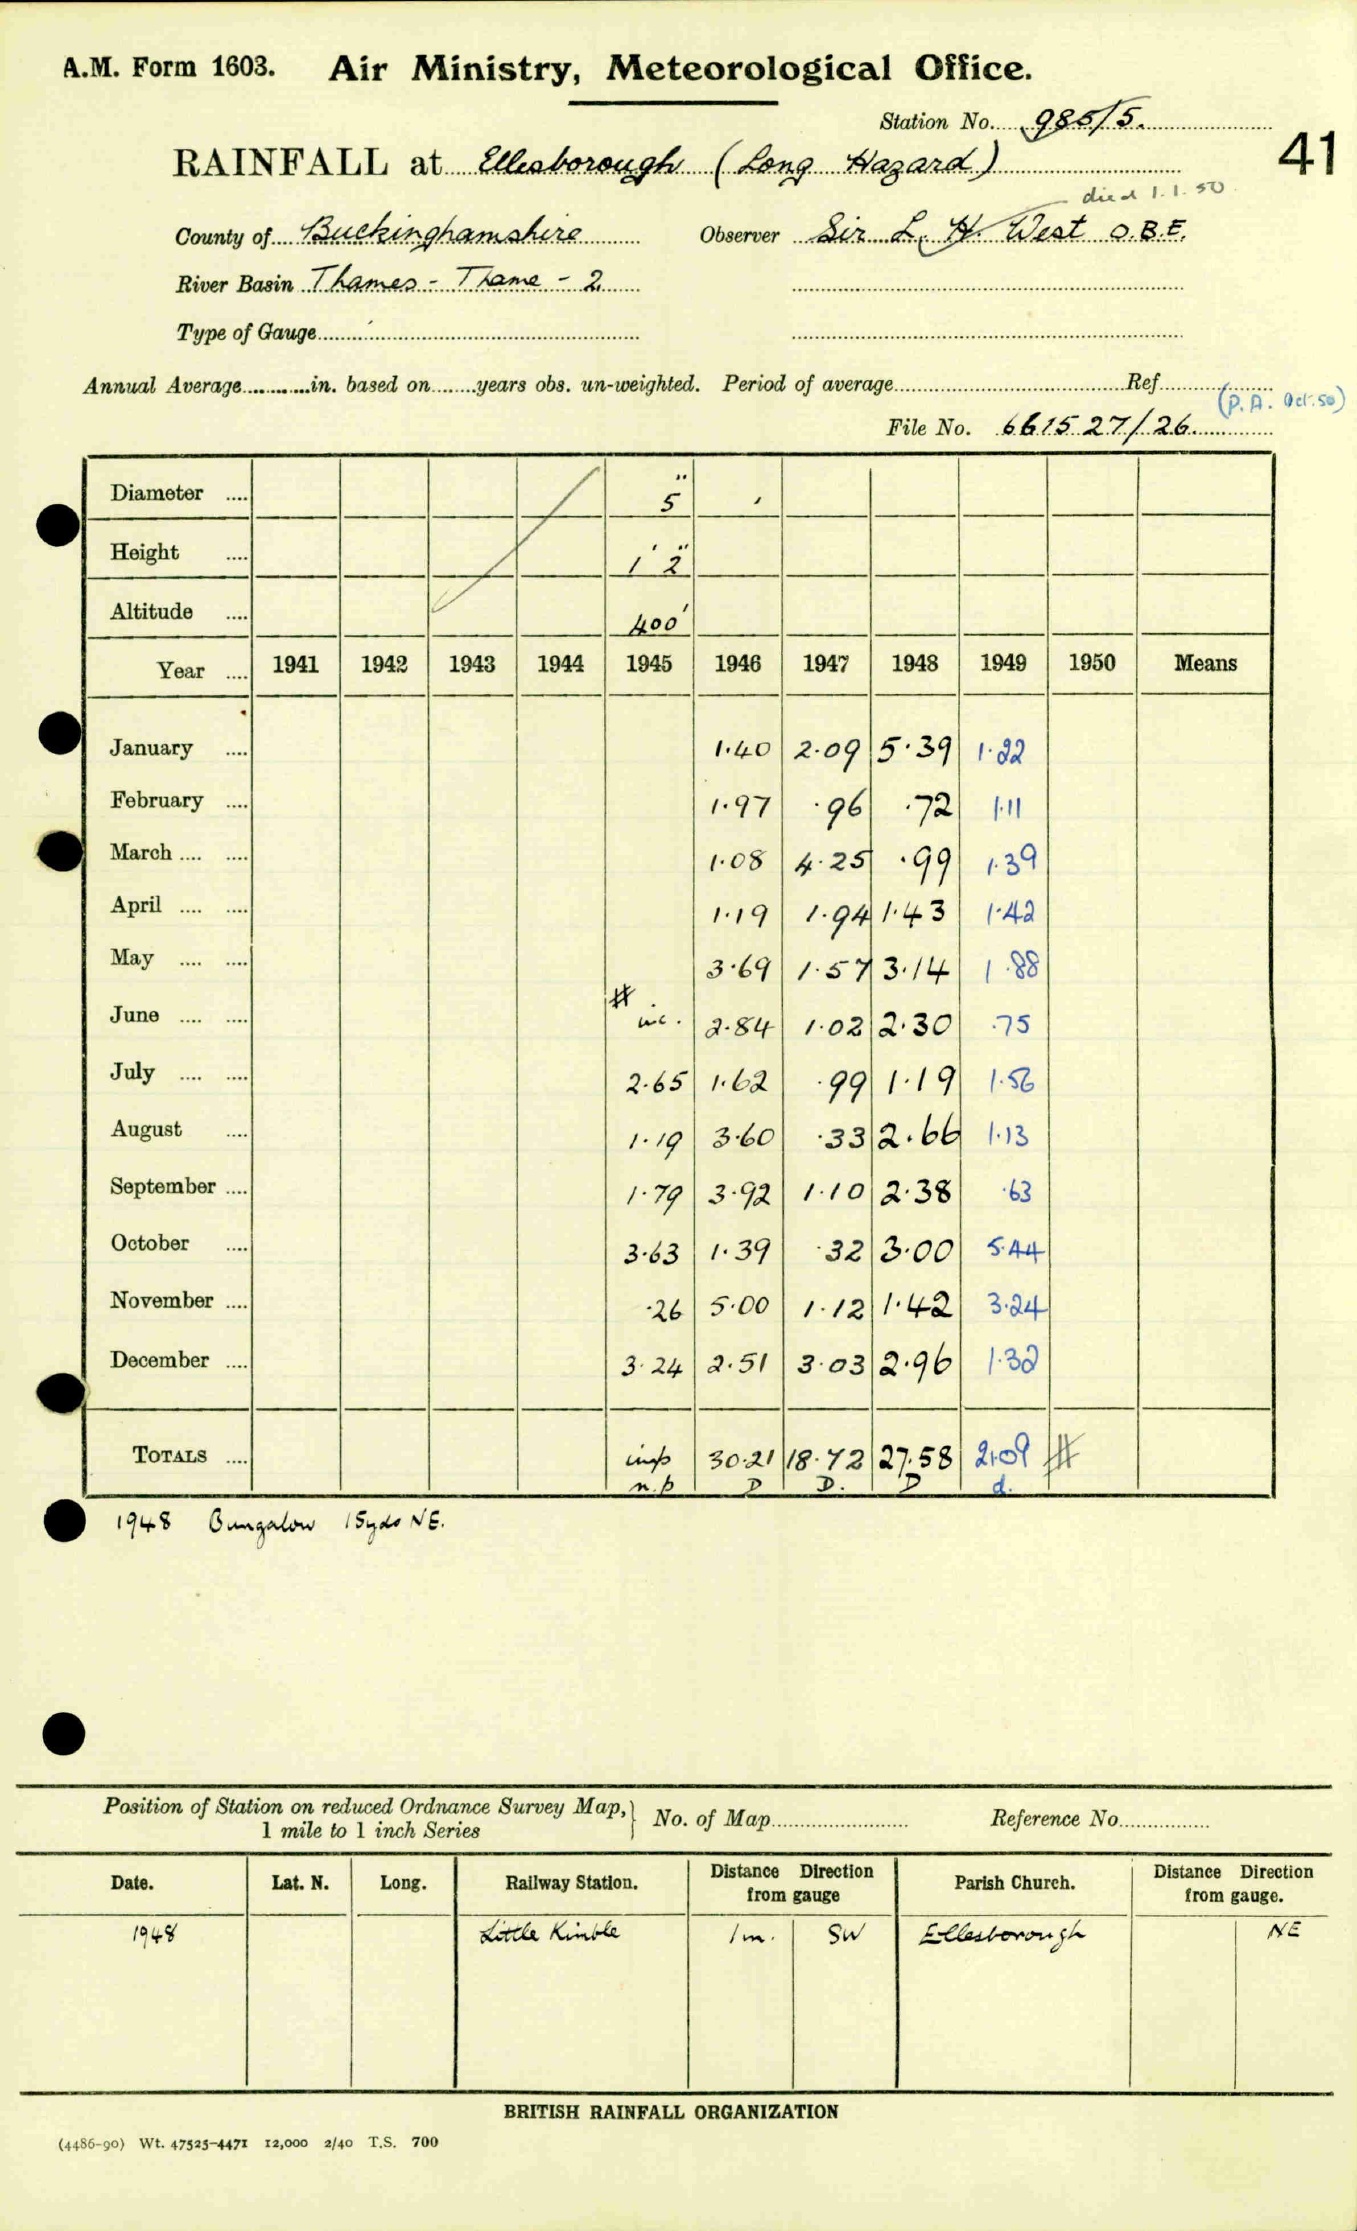 A.M. Form 1603. Air Ministry, Meteorological Office.
Station No. 985/5.
41
RAINFALL at Ellesborough (Long Hazard)
died 1.1.50
County of Buckinghamshire Observer Sir L. H. West O.B.E.
River Basin Thames - Thame - 2
Type of Gauge
Annual Average in. based on years obs. un-weighted. Period of average Ref
(P.A. Oct. 50)
File No. 661527/26
Diameter .... 5"
Height .... 1' 2"
Altitude .... 400'
Year .... 1941 1942 1943 1944 1945 1946 1947 1948 1949 1950 Means
January .... 1.40 2.09 5.39 1.22
February .... 1.97 .96 .72 1.11
March .... .... 1.08 4.25 .99 1.39
April .... .... 1.19 1.94 1.43 1.42
May .... .... 3.69 1.57 3.14 1.88
June .... .... # inc. 2.84 1.02 2.30 .75
July .... .... 2.65 1.62 .99 1.19 1.56
August .... 1.19 3.60 .33 2.66 1.13
September .... 1.79 3.92 1.10 2.38 .63
October .... 3.63 1.39 .32 3.00 5.44
November .... .26 5.00 1.12 1.42 3.24
December .... 3.24 2.51 3.03 2.96 1.32
TOTALS .... inp 30.21 18.72 27.58 21.09 #
n.p D D. D d.
1948 Bungalow 15yds NE.
Position of Station on reduced Ordnance Survey Map, 1 mile to 1 inch Series } No. of Map Reference No.
Date. Lat. N. Long. Railway Station. Distance Direction from gauge Parish Church. Distance Direction from gauge.
1948 Little Kimble 1m. SW Ellesborough NE
BRITISH RAINFALL ORGANIZATION
(4486-90) Wt. 47525-4471 12,000 2/40 T.S. 700